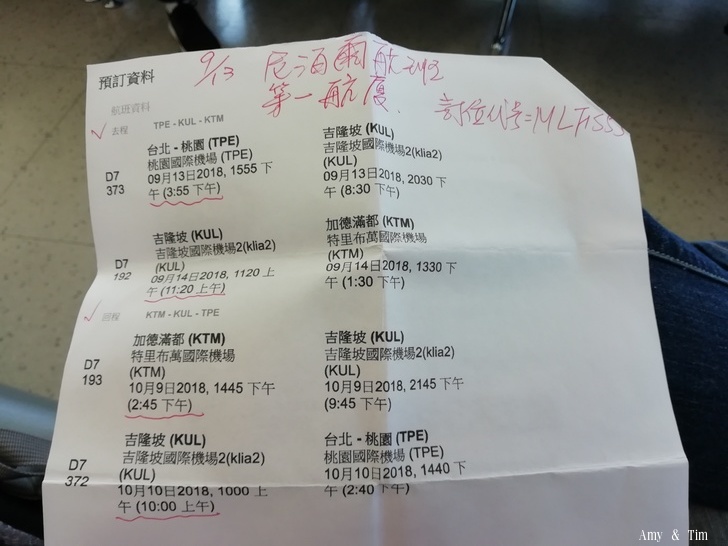 9/13 尼泊爾航班
第一航廈
預訂資料
航班資料
去程 TPE - KUL - KTM
D7
373
台北 - 桃園 (TPE)
桃園國際機場 (TPE)
09月13日2018, 1555 下
午 (3:55 下午)
吉隆坡 (KUL)
吉隆坡國際機場2(klia2)
(KUL)
09月13日2018, 2030 下
午 (8:30 下午)
D7
192
吉隆坡 (KUL)
吉隆坡國際機場2(klia2)
(KUL)
09月14日2018, 1120 上
午 (11:20 上午)
加德滿都 (KTM)
特里布萬國際機場
(KTM)
09月14日2018, 1330 下
午 (1:30 下午)
回程 KTM - KUL - TPE
D7
193
加德滿都 (KTM)
特里布萬國際機場
(KTM)
10月9日2018, 1445 下午
(2:45 下午)
吉隆坡 (KUL)
吉隆坡國際機場2(klia2)
(KUL)
10月9日2018, 2145 下午
(9:45 下午)
D7
372
吉隆坡 (KUL)
吉隆坡國際機場2(klia2)
(KUL)
10月10日2018, 1000 上
午 (10:00 上午)
台北 - 桃園 (TPE)
桃園國際機場 (TPE)
10月10日2018, 1440 下
午 (2:40 下午)
Amy & Tim